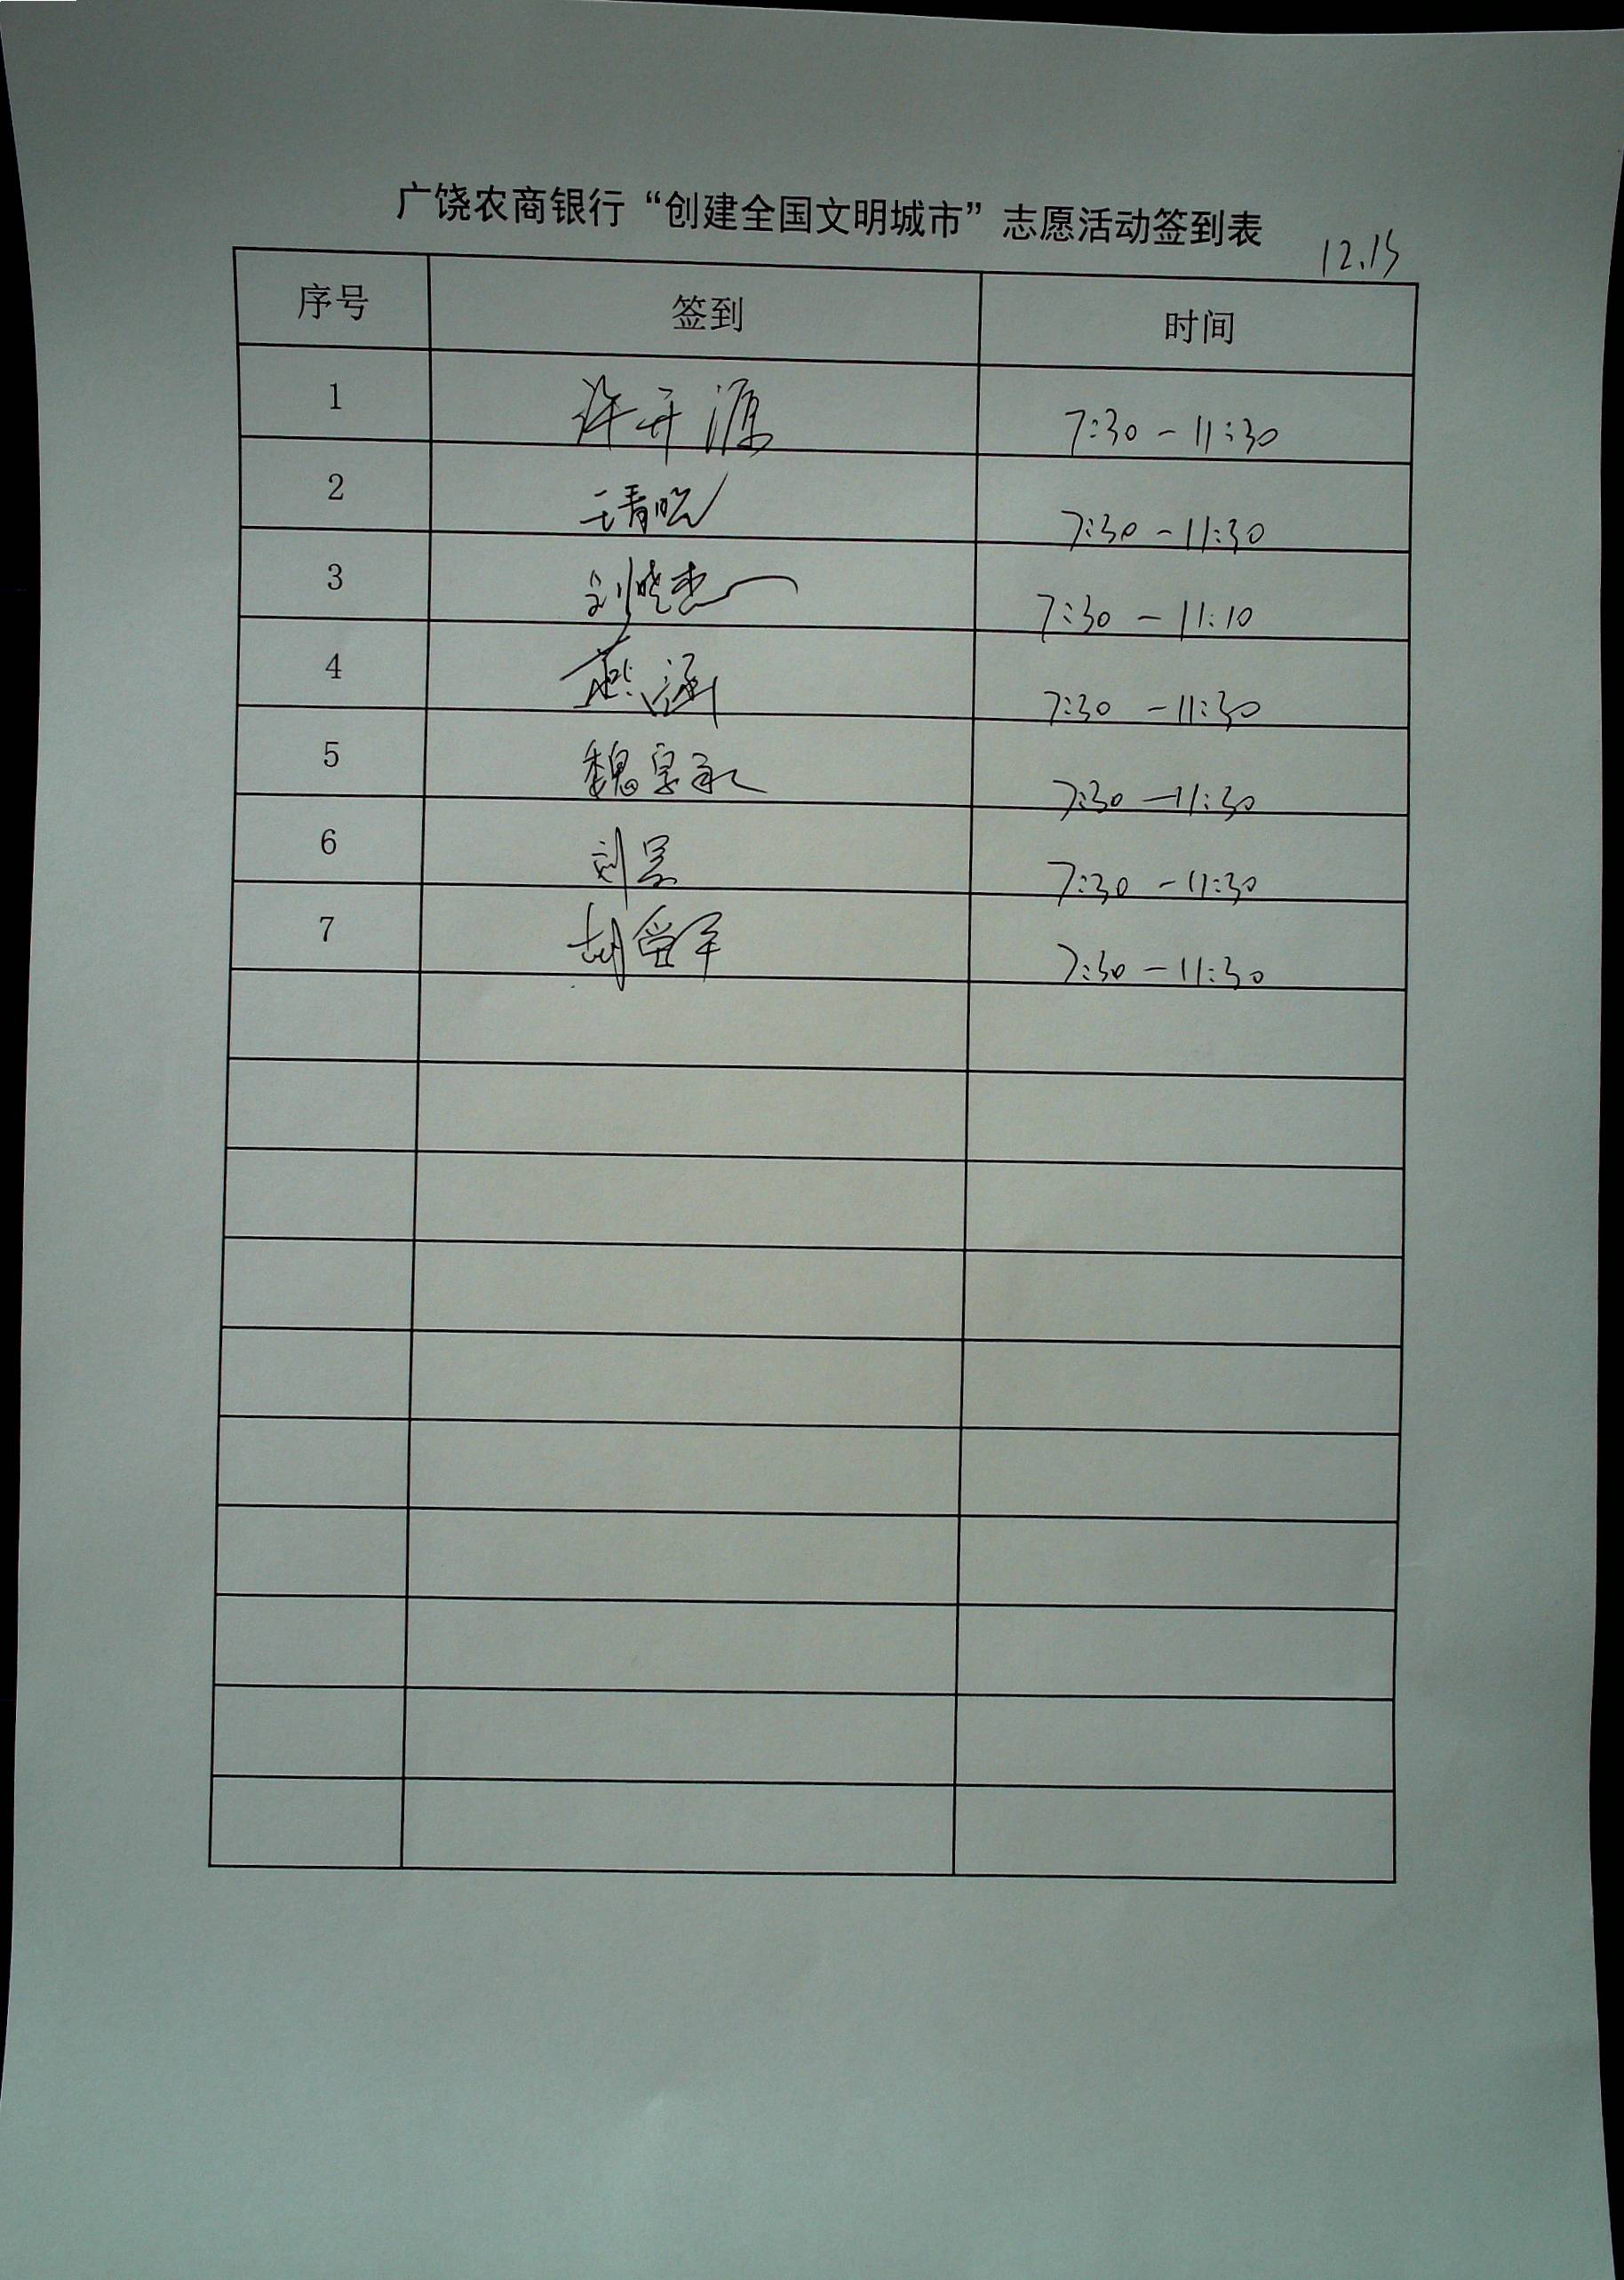 广饶农商银行“创建全国文明城市”志愿活动签到表
12.15
序号 签到 时间
1 许开源 7:30-11:30
2 7:30-11:30
3 刘晓杰 7:30-11:10
4 燕涵 7:30-11:30
5 魏 7:30-11:30
6 刘昊 7:30-11:30
7 胡 军 7:30-11:30